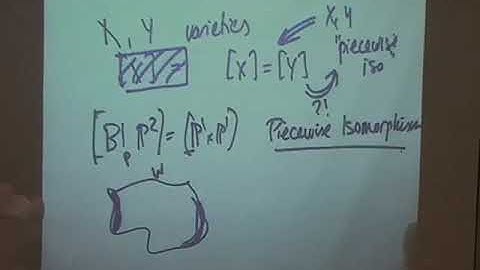 X, Y varieties
X, Y
"piecewise"
iso
[X] = [Y]
?!
[Bl_p P²] = [P¹ × P¹]
Piecewise Isomorphism
W